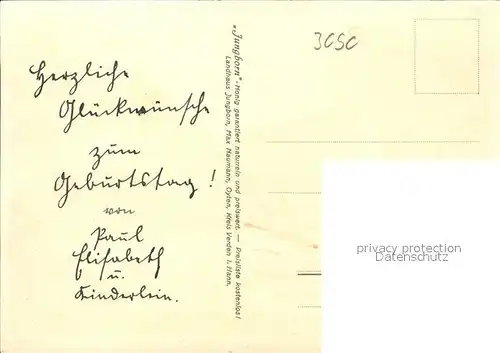 Herzliche
Glückwünsche
zum
Geburtstag!
von
Paul
Elisabeth
u.
Kinderlein.
„Jungborn"-Honig garantiert naturrein und preiswert. — Preisliste kostenlos!
Landhaus Jungborn, Max Naumann, Oyten, Kreis Verden i. Hann.
privacy protection
watermark